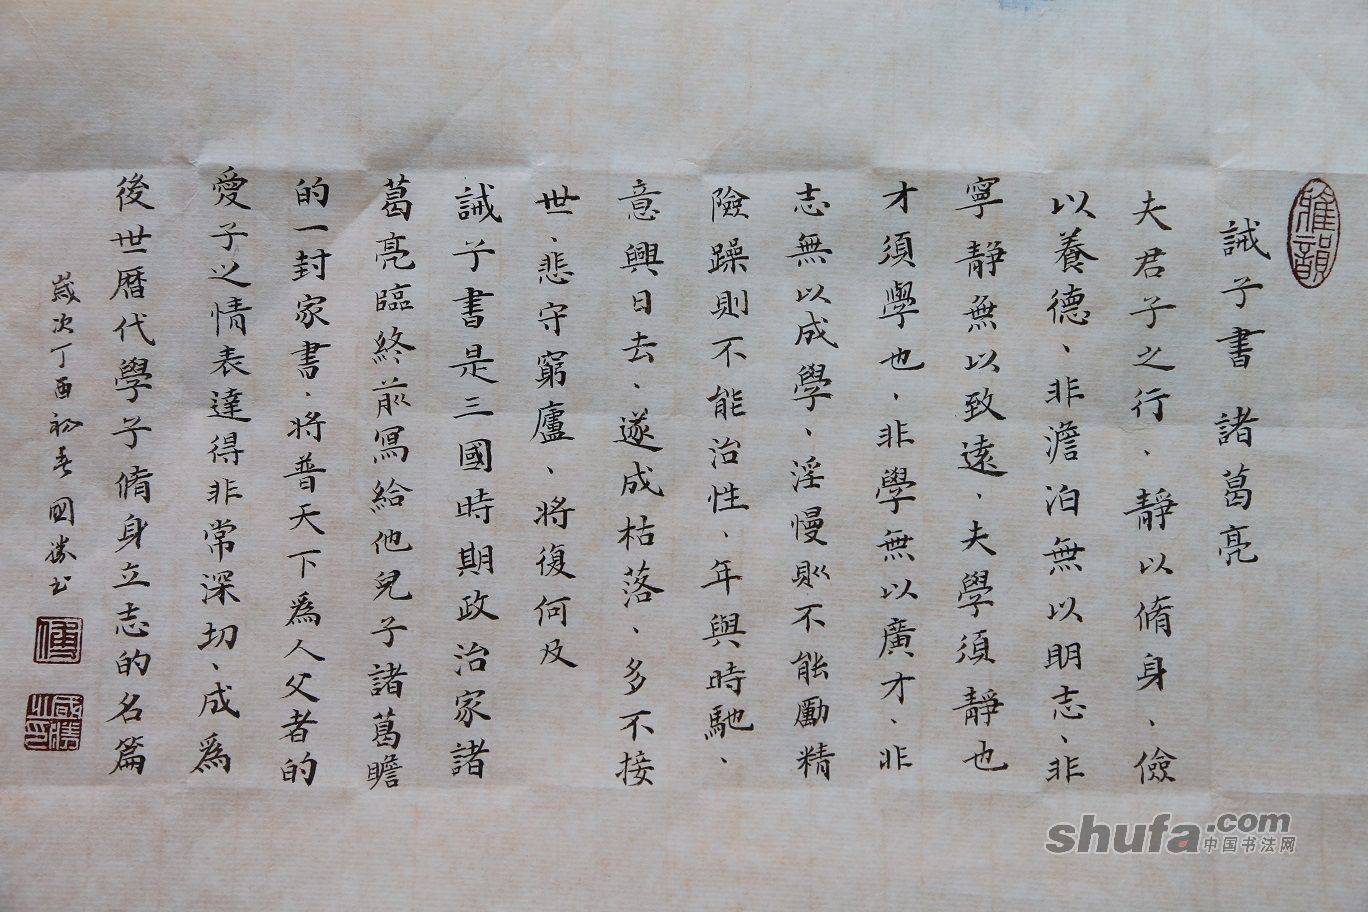 雅韻
誡子書 諸葛亮
夫君子之行、靜以脩身、儉
以養德、非澹泊無以明志、非
寧靜無以致遠、夫學須靜也
才須學也、非學無以廣才、非
志無以成學、淫慢則不能勵精
險躁則不能治性、年與時馳、
意興日去、遂成枯落、多不接
世、悲守窮廬、將復何及
誡子書是三國時期政治家諸
葛亮臨終前寫給他兒子諸葛瞻
的一封家書、將普天下為人父者的
愛子之情表達得非常深切、成為
後世曆代學子脩身立志的名篇
歲次丁酉初春國勝書
shufa.com
中国书法网